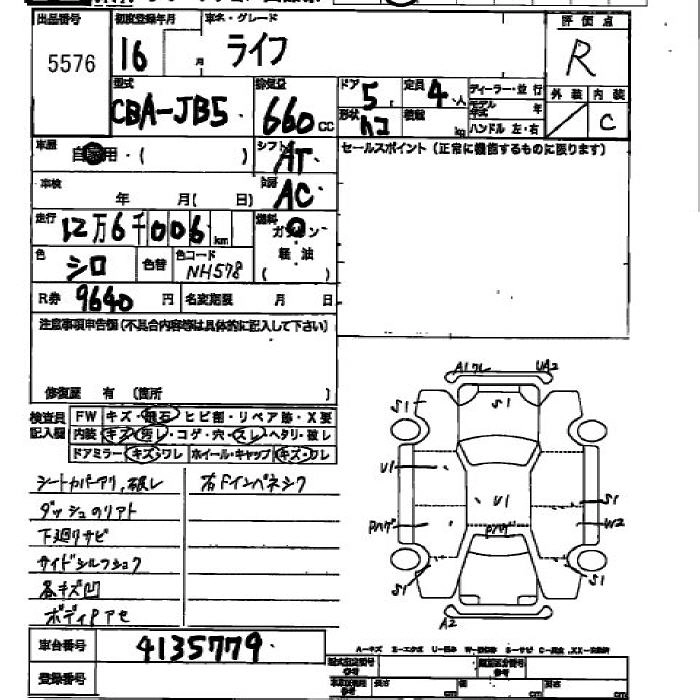 出品番号 初度登録年月 車名・グレード 評価点
5576 16 月 ライフ R
型式 排気量 ドア 定員 ディーラー・並行 外装 内装
CBA-JB5 660cc 5 4人 モデル年式 年 C
形状 積載 kg ハンドル 左・右
車歴 自家用・( ) シフト AT セールスポイント(正常に機能するものに限ります)
車検 年 月( 日) AC
走行 12万6千006km 燃料 ガソリン
軽油
色 シロ 色替 色コード NH578 ( )
R券 9640円 名変期限 月 日
注意事項申告欄(不具合内容等は具体的に記入して下さい)
修復歴 有(箇所 )
検査員 FW キズ・飛石・ヒビ割・リペア跡・X要
記入欄 内装 キズ・汚レ・コゲ・穴・スレ・ヘタリ・破レ
ドアミラー キズ・ワレ ホイール・キャップ キズ・ワレ
シートカバーアリ,破レ 右Fインパネシク
ダッシュのリアト
下廻リサビ
サイドシルフショク
各キズ凹
ボディPアセ
A1ワレ UA2
S1 S1
U1 U1 S1
Pハゲ Pハゲ W2
S1 S1
A2
車台番号 4135779
登録番号
A-キズ U-凹み S-サビ
型式指定番号 類別区分番号
長さ cm 幅 cm 高さ cm